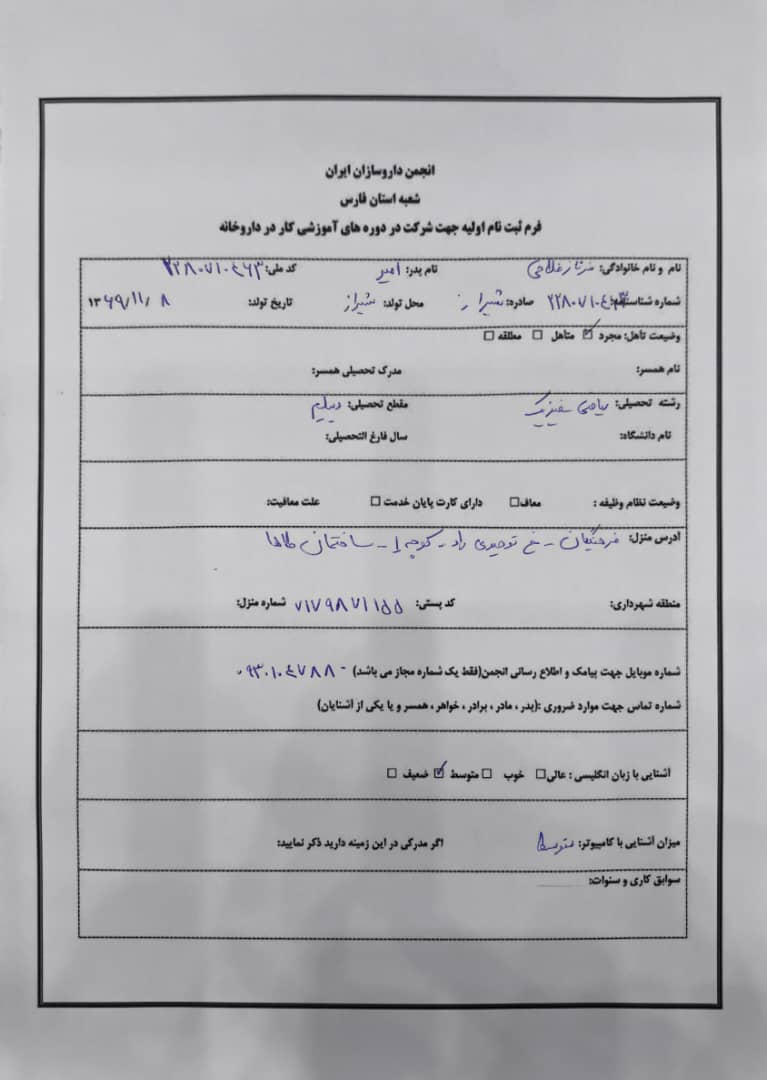 انجمن داروسازان ایران
شعبه استان فارس
فرم ثبت نام اولیه جهت شرکت در دوره های آموزشی کار در داروخانه
نام و نام خانوادگی: فرناز غلامی نام پدر: امیر کد ملی: ۲۲۸۰۷۱۰۴۶۳
شماره شناسنامه: ۲۲۸۰۷۱۰۴۶۳ صادره: شیراز محل تولد: شیراز تاریخ تولد: ۱۳۶۹/۱۱/۸
وضیعت تاهل: مجرد ☑ متأهل ☐ مطلقه ☐
نام همسر: مدرک تحصیلی همسر:
رشته تحصیلی: ریاضی فیزیک مقطع تحصیلی: دیپلم
نام دانشگاه: سال فارغ التحصیلی:
وضیعت نظام وظیفه : معاف☐ دارای کارت پایان خدمت ☐ علت معافیت:
آدرس منزل: فرهنگیان - خ توحیدی راد - کوچه ۱ - ساختمان طاها
منطقه شهرداری: کد پستی: ۷۱۷۹۸۷۱۱۵۵ شماره منزل:
شماره موبایل جهت پیامک و اطلاع رسانی انجمن(فقط یک شماره مجاز می باشد) ۰۹۳۰۱۰۴۷۸۸۰
شماره تماس جهت موارد ضروری :(پدر ، مادر ، برادر ، خواهر ، همسر و یا یکی از آشنایان)
آشنایی با زبان انگلیسی : عالی☐ خوب ☐ متوسط ☑ ضعیف ☐
میزان آشنایی با کامپیوتر: متوسط اگر مدرکی در این زمینه دارید ذکر نمایید:
سوابق کاری و سنوات: